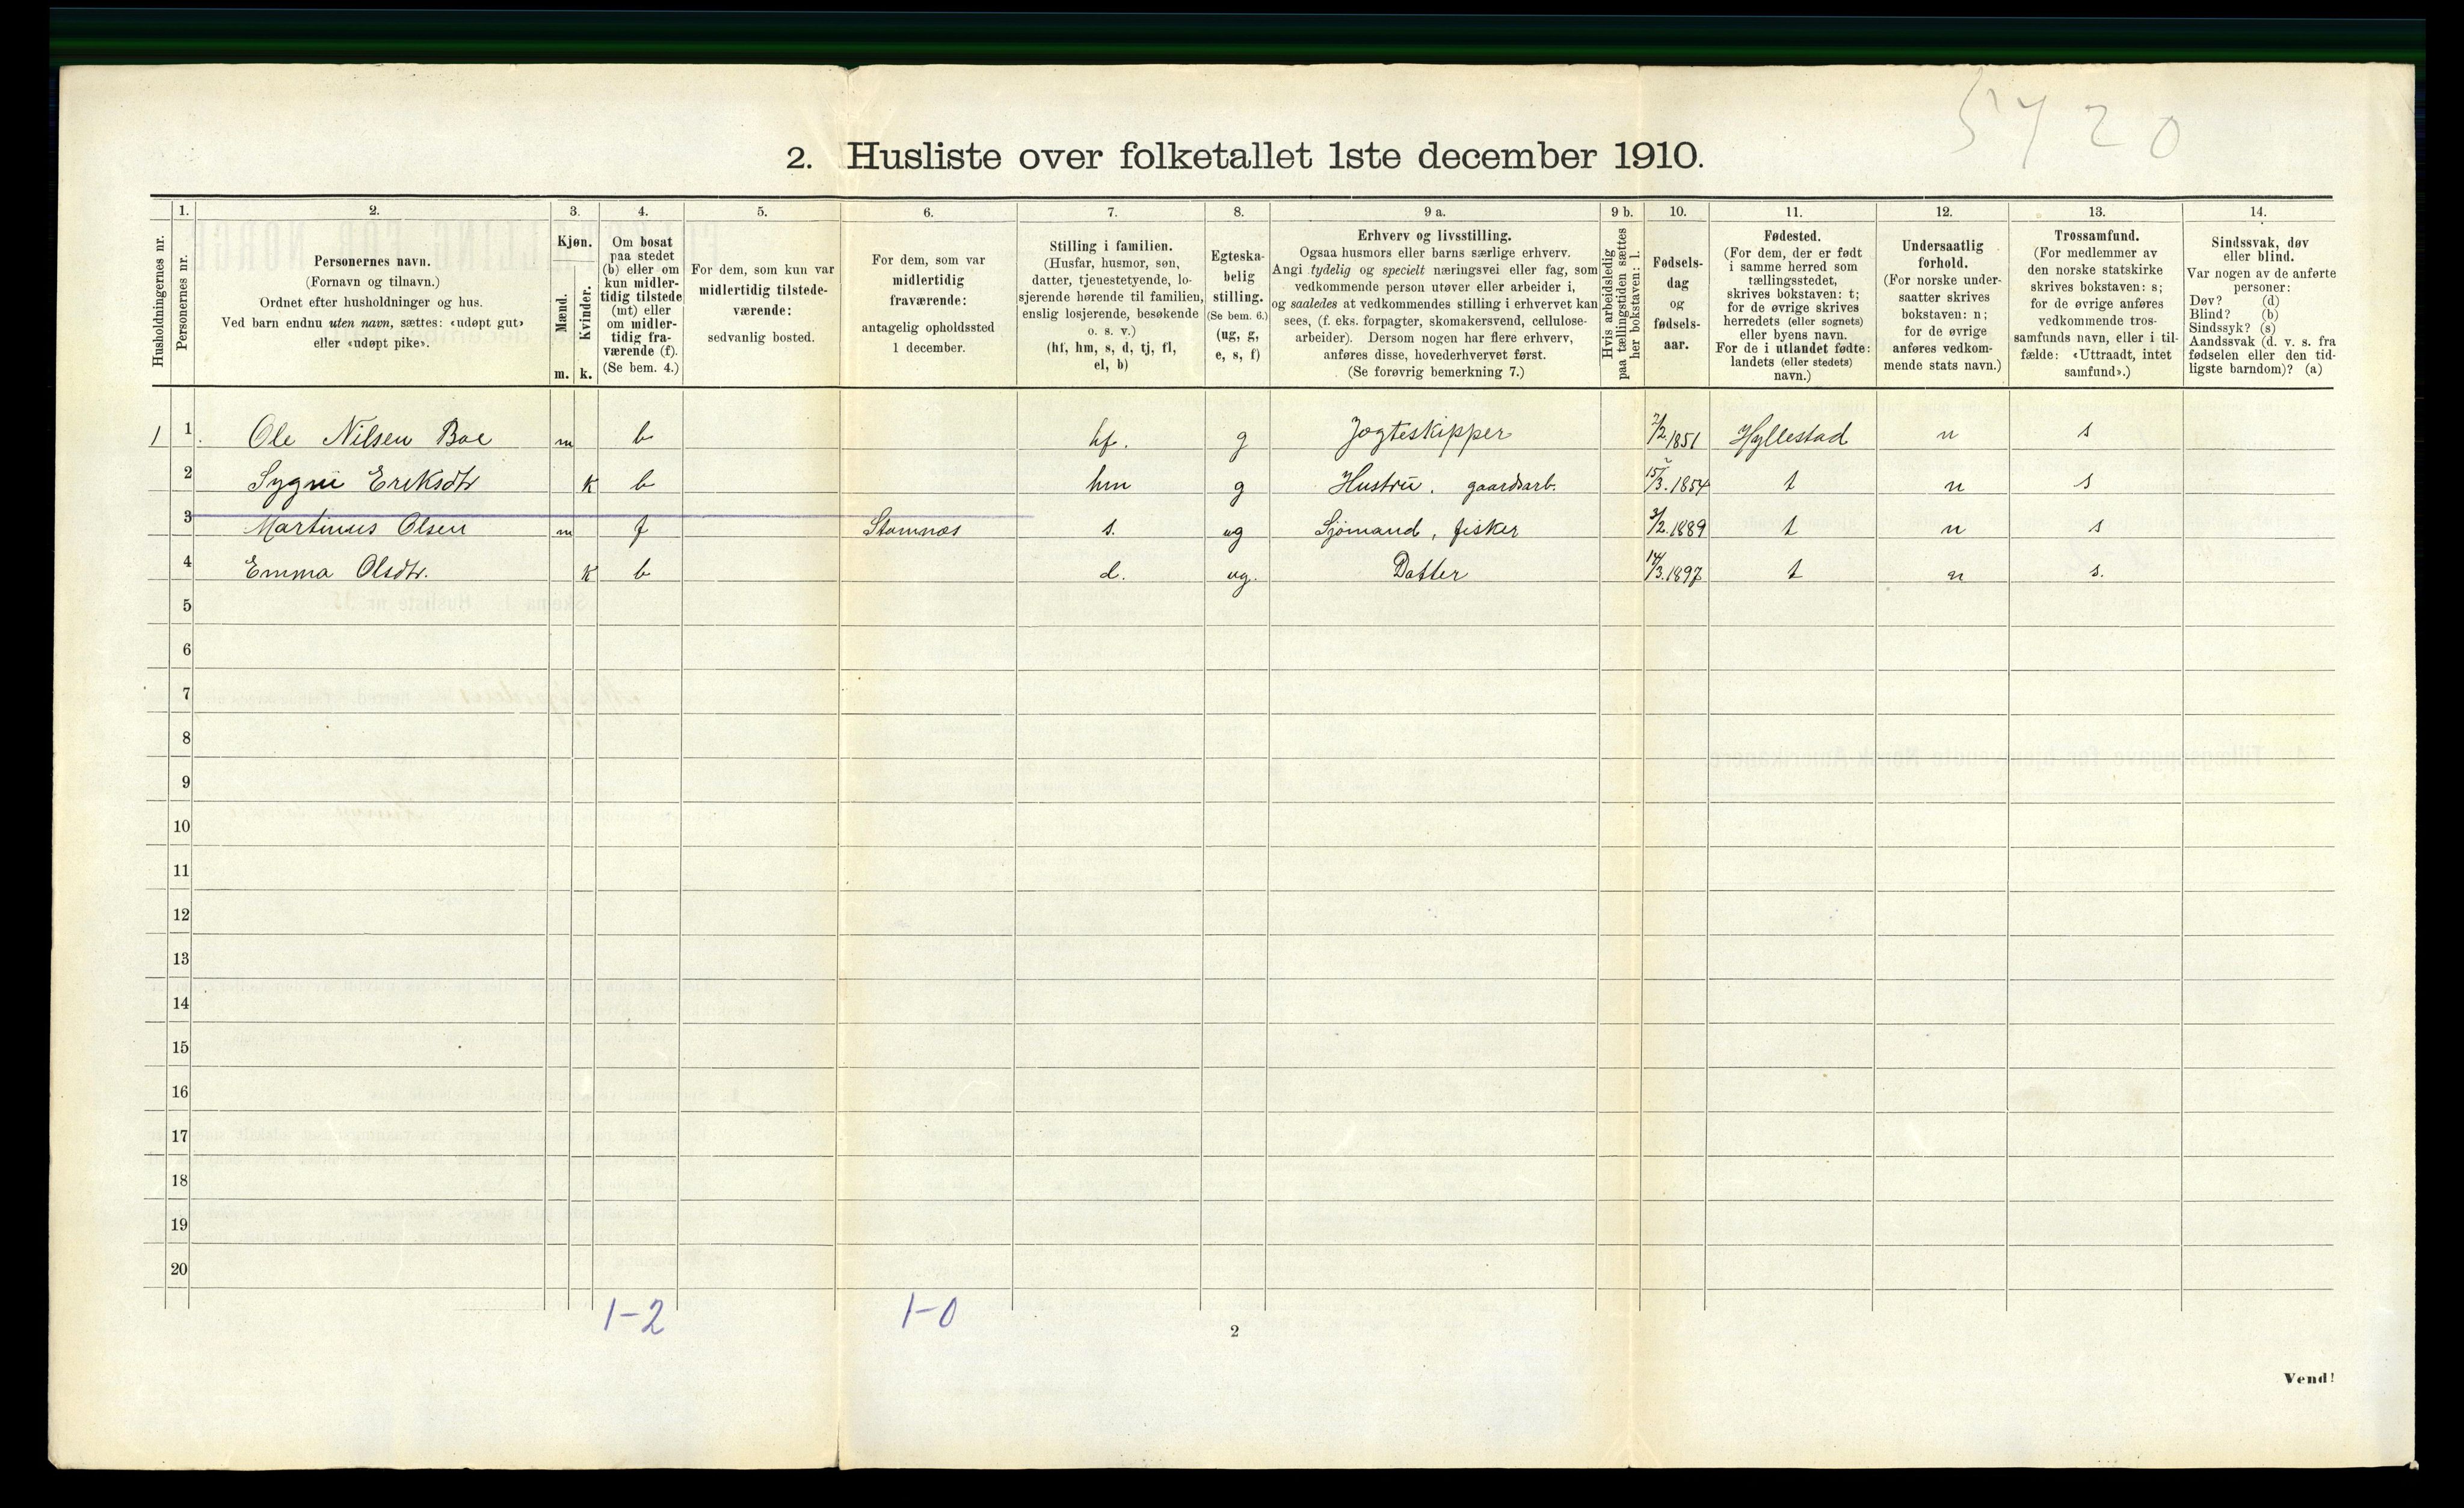 5720
2. Husliste over folketallet 1ste december 1910.
Husholdningernes nr.
1.
Personernes nr.
2.
Personernes navn.
(Fornavn og tilnavn.)
Ordnet efter husholdninger og hus.
Ved barn endnu uten navn, sættes: «udøpt gut»
eller «udøpt pike».
3.
Kjøn.
Mænd.
Kvinder.
m. k.
4.
Om bosat
paa stedet
(b) eller om
kun midler-
tidig tilstede
(mt) eller
om midler-
tidig fra-
værende (f).
(Se bem. 4.)
5.
For dem, som kun var
midlertidig tilstede-
værende:
sedvanlig bosted.
6.
For dem, som var
midlertidig
fraværende:
antagelig opholdssted
1 december.
7.
Stilling i familien.
(Husfar, husmor, søn,
datter, tjenestetyende, lo-
sjerende hørende til familien,
enslig losjerende, besøkende
o. s. v.)
(hf, hm, s, d, tj, fl,
el, b)
8.
Egteska-
belig
stilling.
(Se bem. 6.)
(ug, g,
e, s, f)
9 a.
Erhverv og livsstilling.
Ogsaa husmors eller barns særlige erhverv.
Angi tydelig og specielt næringsvei eller fag, som
vedkommende person utøver eller arbeider i,
og saaledes at vedkommendes stilling i erhvervet kan
sees, (f. eks. forpagter, skomakersvend, cellulose-
arbeider). Dersom nogen har flere erhverv,
anføres disse, hovederhvervet først.
(Se forøvrig bemerkning 7.)
9 b.
Hvis arbeidsledig
paa tællingstiden sættes
her bokstaven: l.
10.
Fødsels-
dag
og
fødsels-
aar.
11.
Fødested.
(For dem, der er født
i samme herred som
tællingsstedet,
skrives bokstaven: t;
for de øvrige skrives
herredets (eller sognets)
eller byens navn.
For de i utlandet fødte:
landets (eller stedets)
navn.)
12.
Undersaatlig
forhold.
(For norske under-
saatter skrives
bokstaven: n;
for de øvrige
anføres vedkom-
mende stats navn.)
13.
Trossamfund.
(For medlemmer av
den norske statskirke
skrives bokstaven: s;
for de øvrige anføres
vedkommende tros-
samfunds navn, eller i til-
fælde: «Uttraadt, intet
samfund».)
14.
Sindssvak, døv
eller blind.
Var nogen av de anførte
personer:
Døv? (d)
Blind? (b)
Sindssyk? (s)
Aandssvak (d. v. s. fra
fødselen eller den tid-
ligste barndom)? (a)
1 1 Ole Nilsen Boe m b hf. g Jogteskipper 7/2 1851 Hyllestad n s
2 Sygni Eriksdtr k b hm g Hustru. gaardsarb. 15/3. 1854 t n s
3 Martinus Olsen m f Stamnæs s. ug Sjömand, fisker 3/2. 1889 t n s
4 Emma Olsdtr. k b d. ug. Datter 14/3. 1897 t n s.
5
6
7
8
9
10
11
12
13
14
15
16
17
18
19
20
1-2 1-0
2
Vend!